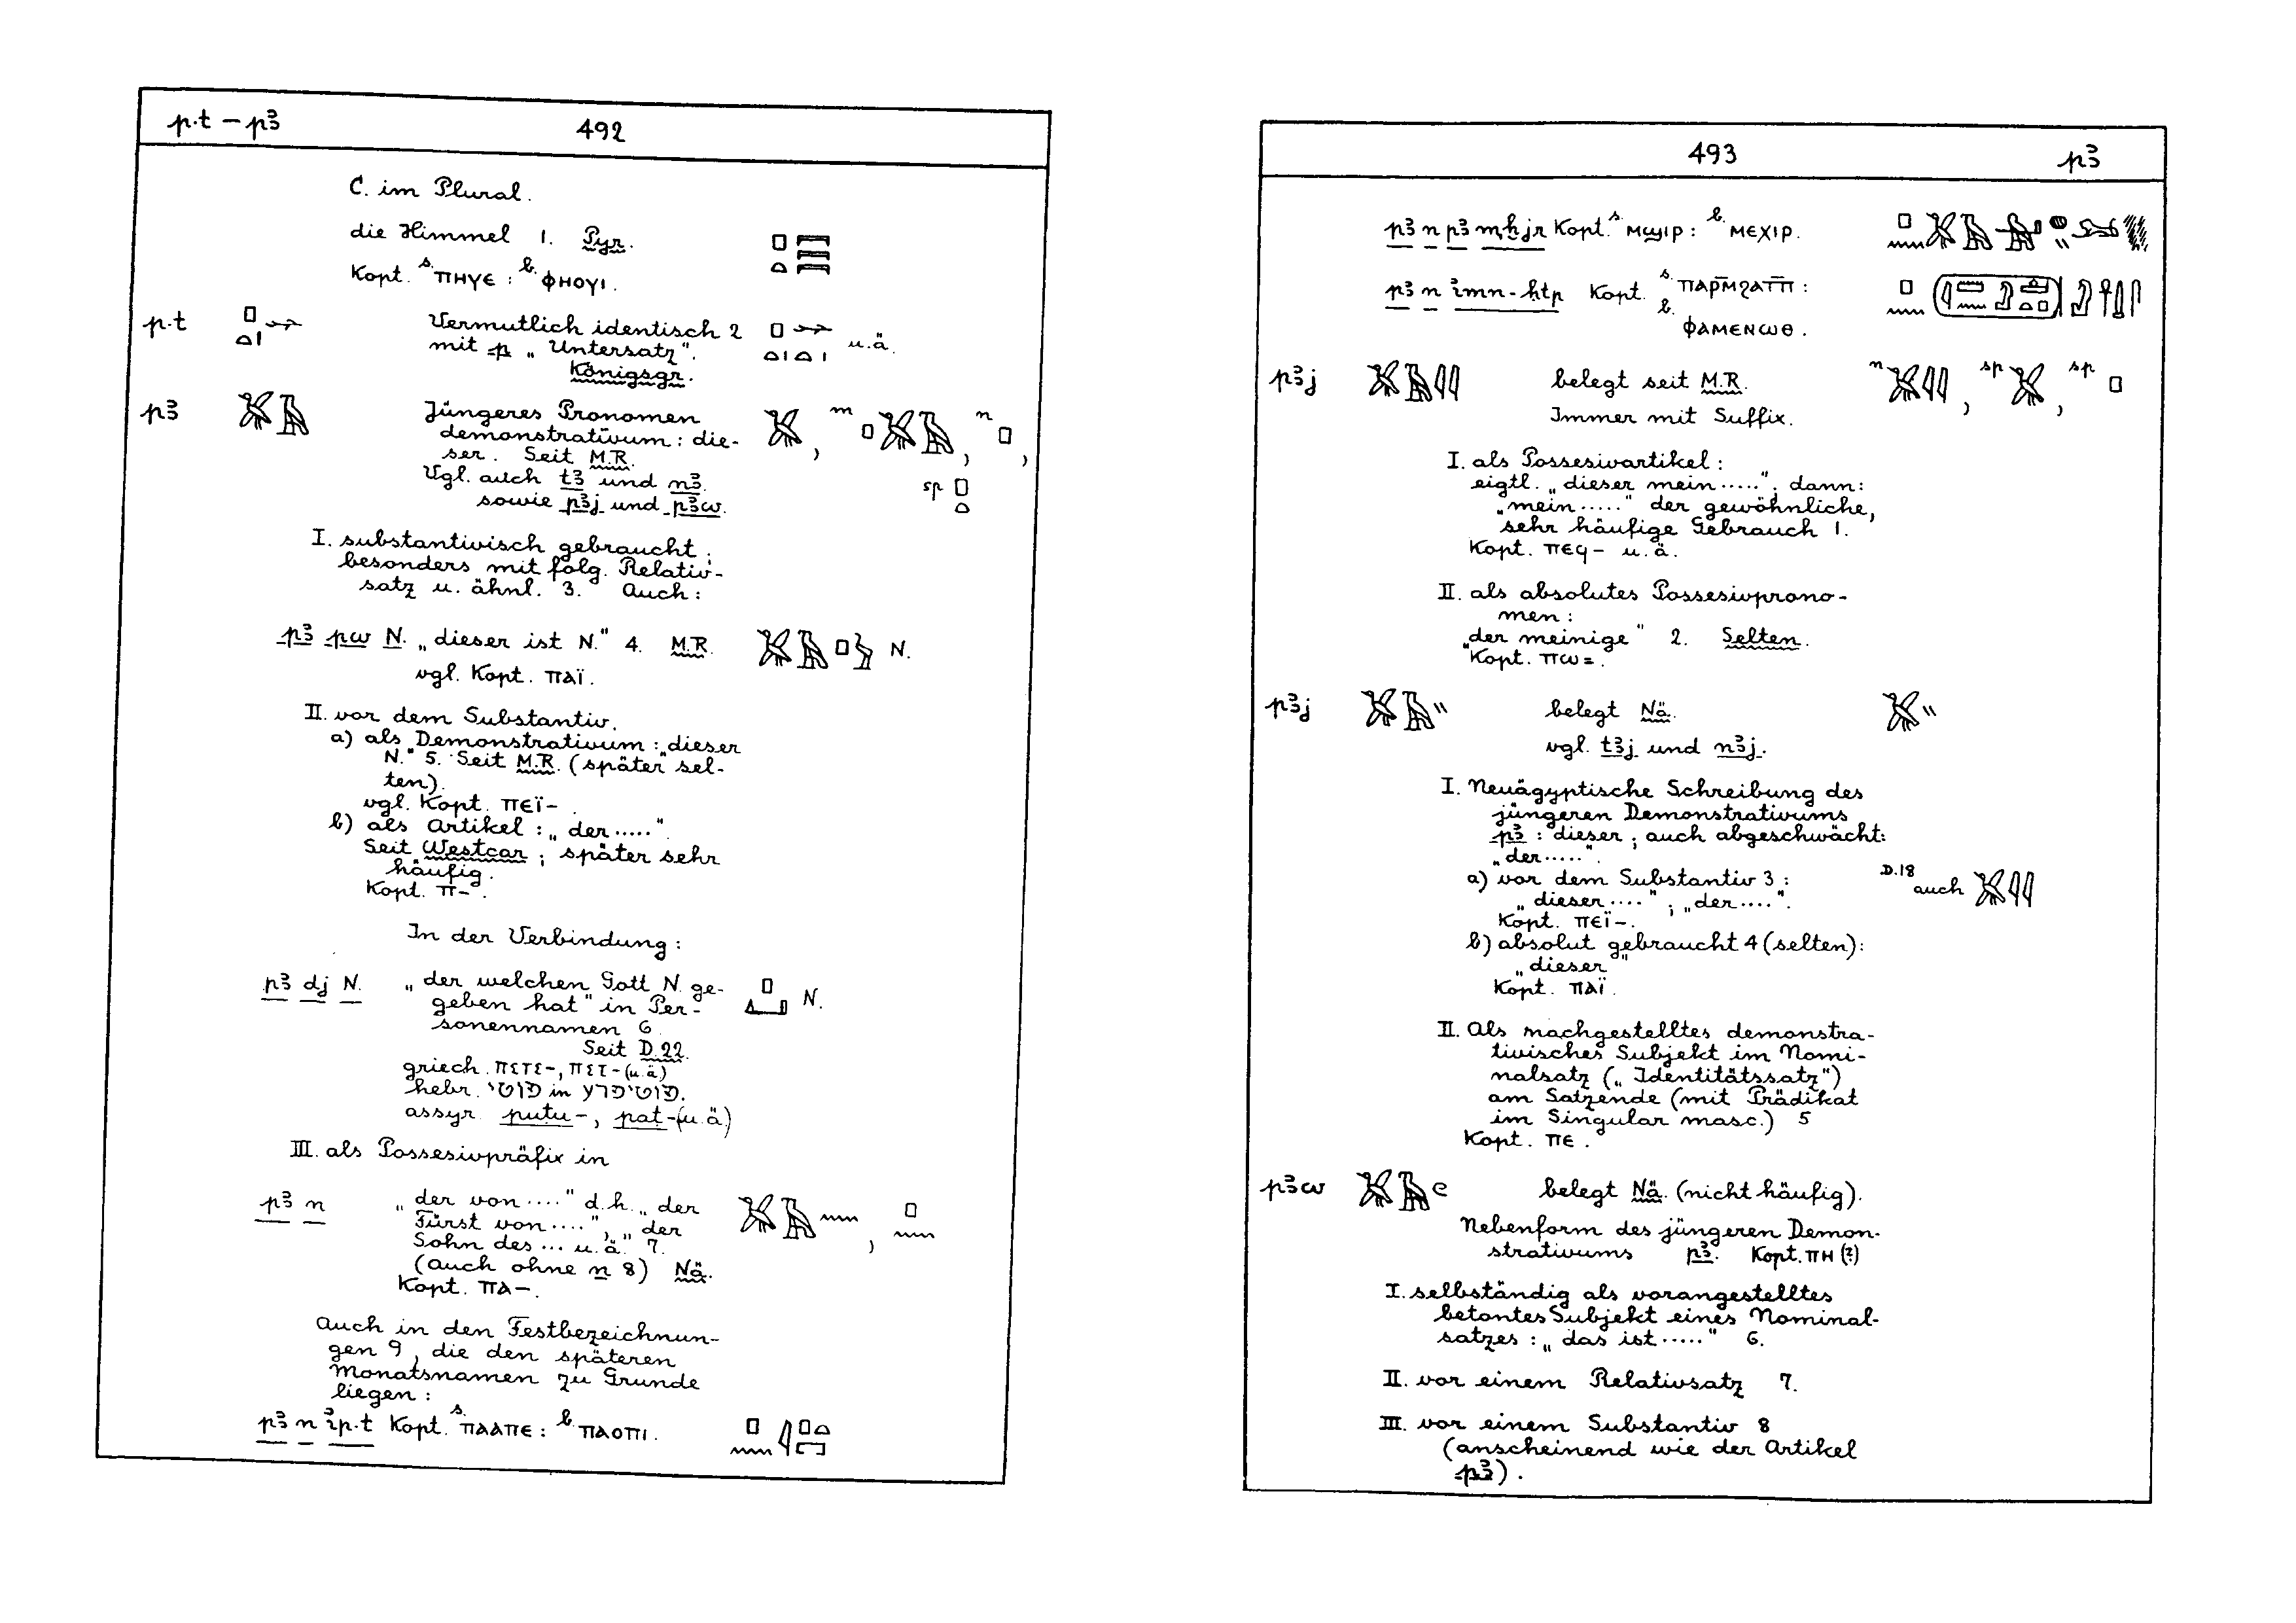 p.t – pꜣ 492
C. im Plural.
die Himmel 1. Pyr.
Kopt. s. ⲡⲏⲩⲉ : b. ⲫⲏⲟⲩⲓ.
p.t Vermutlich identisch 2 u.ä.
mit p „Untersatz“.
Königsgr.
pꜣ Jüngeres Pronomen , m , n ,
demonstrativum: die-
ser. Seit M.R.
Vgl. auch tꜣ und nꜣ. sp
sowie pꜣj und pꜣw.
I. substantivisch gebraucht;
besonders mit folg. Relativ-
satz u. ähnl. 3. Auch:
pꜣ pw N. „dieser ist N.“ 4. M.R. N.
vgl. Kopt. ⲡⲁⲓ̈.
II. vor dem Substantiv.
a) als Demonstrativum: „dieser
N.“ 5. Seit M.R. (später sel-
ten).
vgl. Kopt. ⲡⲉⲓ̈–.
b) als Artikel: „der.....“.
Seit Westcar; später sehr
häufig.
Kopt. ⲡ–.
In der Verbindung:
pꜣ dj N. „der welchen Gott N. ge- N.
geben hat“ in Per-
sonennamen 6.
Seit D.22.
griech. πετε–, πετ–(u.ä.)
hebr. פוטי in פוטיפרע.
assyr. putu–, pat–(u.ä.)
III. als Possesivpräfix in
pꜣ n „der von....“ d.h. „der ,
Fürst von....“, „der
Sohn des... u.ä. 7.
(auch ohne n 8) Nä.
Kopt. ⲡⲁ–.
Auch in den Festbezeichnun-
gen 9, die den späteren
Monatsnamen zu Grunde
liegen:
pꜣ n ꞽp.t Kopt. s. ⲡⲁⲁⲡⲉ : b. ⲡⲁⲟⲡⲓ.
493 pꜣ
pꜣ n pꜣ mḫjr Kopt. s. ⲙϣⲓⲣ : b. ⲙⲉⲭⲓⲣ.
pꜣ n ꞽmn-ḥtp Kopt. s. ⲡⲁⲣⲙ̄ϩⲁⲧⲡ̄ :
b. ⲫⲁⲙⲉⲛⲱⲑ.
pꜣj belegt seit M.R. n , sp , sp
Immer mit Suffix.
I. als Possesivartikel:
eigtl. „dieser mein.....“; dann:
„mein.....“ der gewöhnliche,
sehr häufige Gebrauch 1.
Kopt. ⲡⲉϥ– u.ä.
II. als absolutes Possesivprono-
men:
„der meinige“ 2. Selten.
Kopt. ⲡⲱ=.
pꜣj belegt Nä.
vgl. tꜣj und nꜣj.
I. Neuägyptische Schreibung des
jüngeren Demonstrativums
pꜣ: dieser; auch abgeschwächt:
„der.....“.
a) vor dem Substantiv 3: D.18 auch
„dieser....“; „der....“.
Kopt. ⲡⲉⲓ̈–.
b) absolut gebraucht 4 (selten):
„dieser“
Kopt. ⲡⲁⲓ̈.
II. Als nachgestelltes demonstra-
tivisches Subjekt im Nomi-
nalsatz („Identitätssatz“)
am Satzende (mit Prädikat
im Singular masc.) 5
Kopt. ⲡⲉ.
pꜣw belegt Nä. (nicht häufig).
Nebenform des jüngeren Demon-
strativums pꜣ. Kopt. ⲡⲏ (?)
I. selbständig als vorangestelltes
betontes Subjekt eines Nominal-
satzes: „das ist.....“ 6.
II. vor einem Relativsatz 7.
III. vor einem Substantiv 8
(anscheinend wie der Artikel
pꜣ).